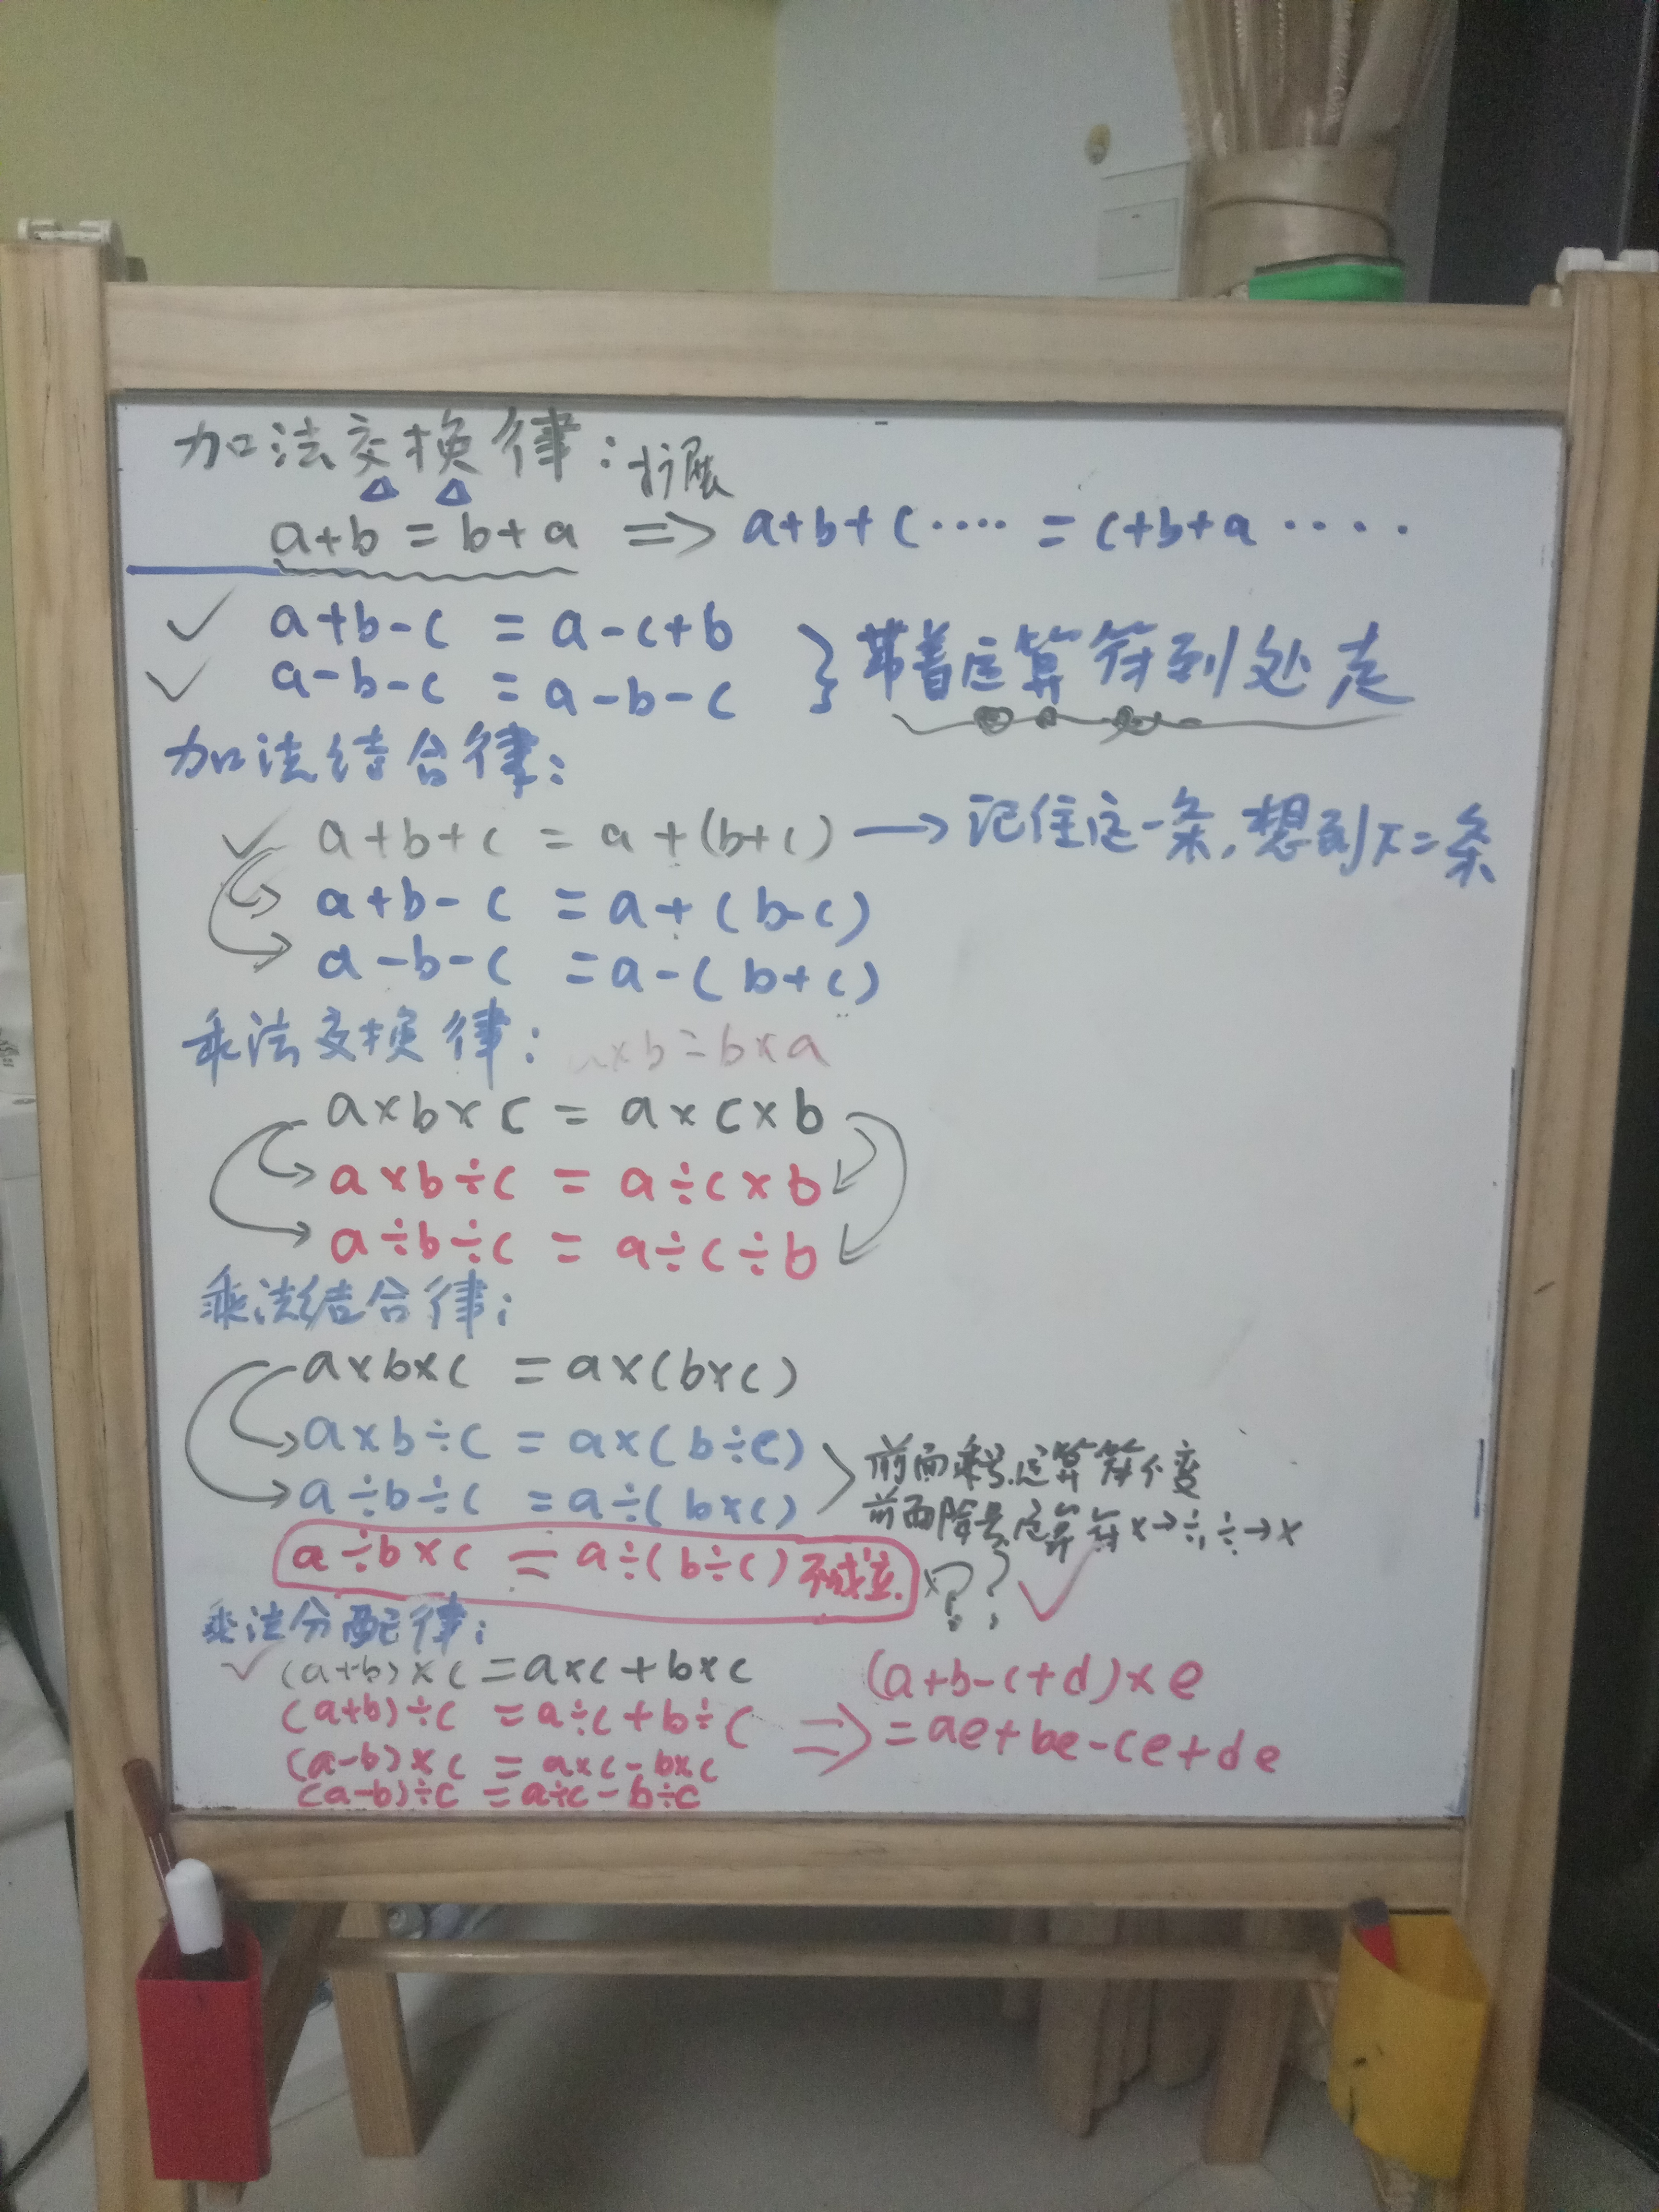 加法交换律：扩展
a+b=b+a => a+b+c····=c+b+a····
✓ a+b-c = a-c+b
✓ a-b-c = a-b-c } 带着运算符到处走
加法结合律：
✓ a+b+c = a+(b+c) → 记住这一条,想到下二条
a+b-c = a+(b-c)
a-b-c = a-(b+c)
乘法交换律： a×b=b×a
a×b×c = a×c×b
a×b÷c = a÷c×b
a÷b÷c = a÷c÷b
乘法结合律：
a×b×c = a×(b×c)
a×b÷c = a×(b÷c)
a÷b÷c = a÷(b×c)
前面乘号.运算符不变
前面除号运算符×→÷,÷→×
a÷b×c = a÷(b÷c) 不成立. ?? ✓
乘法分配律：
✓ (a+b)×c=a×c+b×c
(a+b)÷c = a÷c+b÷c
(a-b)×c = a×c-b×c
(a-b)÷c = a÷c-b÷c
=> (a+b-c+d)×e
=ae+be-ce+de